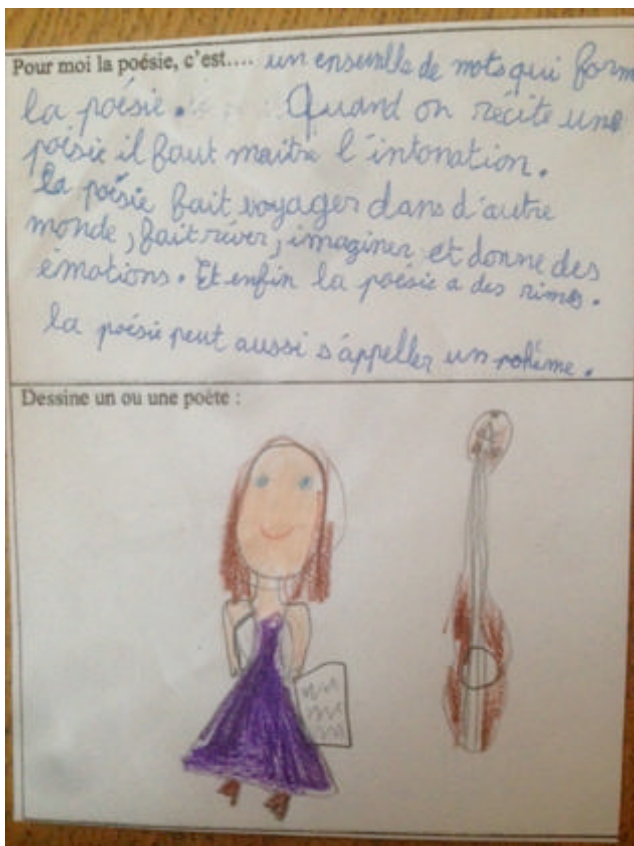 Pour moi la poésie, c'est.... un ensemble de mots qui form
la poésie. Quand on récite une
poisie il faut maitre l'intonation.
la poésie fait voyager dans d'autre
monde, fait rêver, imaginer et donne des
émotions. Et enfin la poésie a des rimes.
la poésie peut aussi s'appeller un pohème.
Dessine un ou une poète :